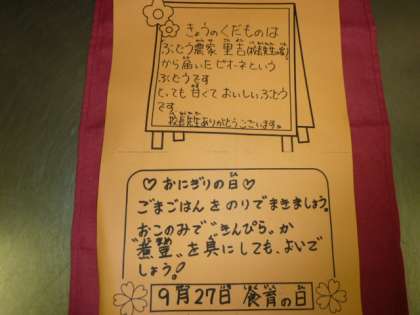 きょうのくだものは
ぶどう農家 里吉
から届いたピオーネという
ぶどうです
とっても甘くておいしいぶどう
です。
校長先生ありがとうございます。
♡おにぎりの日♡
ごまごはんをのりでまきましょう。
おこのみで"きんぴら"か
"煮豆"を具にしても、よいで
しょう!
9月27日 食育の日